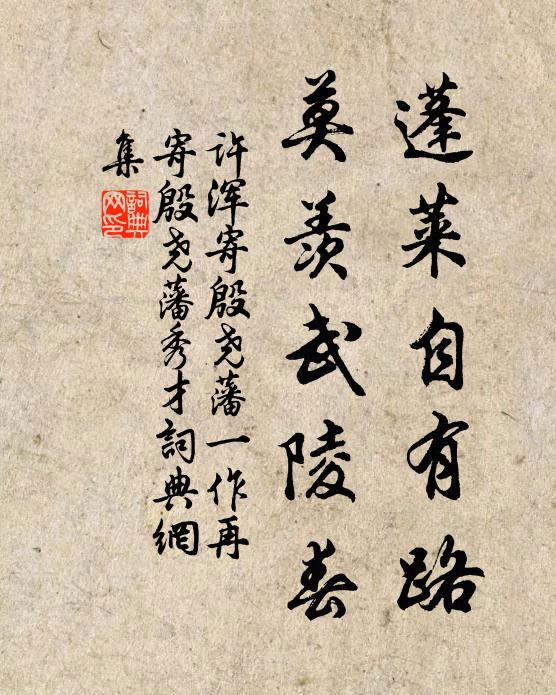 蓬莱自有路
莫羡武陵春
许浑寄殷尧藩一作再
寄殷尧藩秀才詞典網
集
詞典
网印